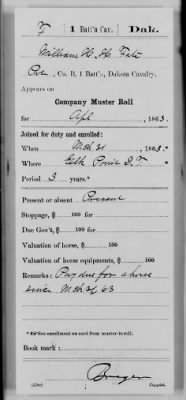 F | 1 Batt'n Cav. | Dak.
William H. H. Fate
Co. B, 1 Batt'n, Dakota Cavalry.
Appears on
Company Muster Roll
for Apl, 1863.
Joined for duty and enrolled:
When Mch 31, 1863.*
Where Elk Point D.T.
Period 3 years.*
Present or absent Present
Stoppage, $ 100 for
Due Gov't, $ 100 for
Valuation of horse, $ 100
Valuation of horse equipments, $ 100
Remarks: Pay due from a horse
since Mch 31, 63
*See enrollment on card from muster-in roll.
Book mark:
(358c)
Copyist.